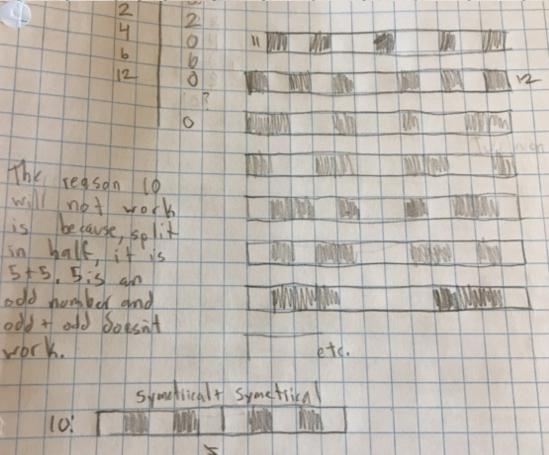 2 2
4 0
6 6
12 0
?
0
11
12
The reason 10
will not work
is because, split
in half, it is
5+5. 5 is an
odd number and
odd + odd doesn't
work.
etc.
Symetrical + Symetrical
10: